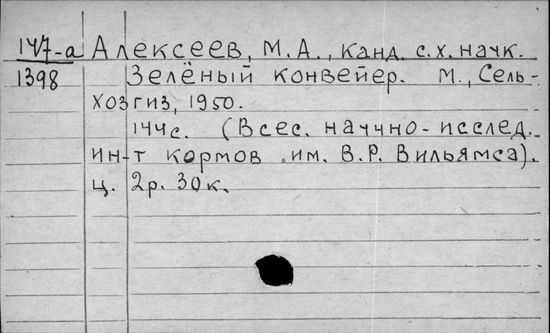 147-а Алексеев, М.А., канд. с.х. наук.
1398 Зелёный конвейер. М., Сель-
хозгиз, 1950.
144с. (Всес. научно-исслед.
ин-т кормов им. В.Р. Вильямса).
ц. 2р. 30к.